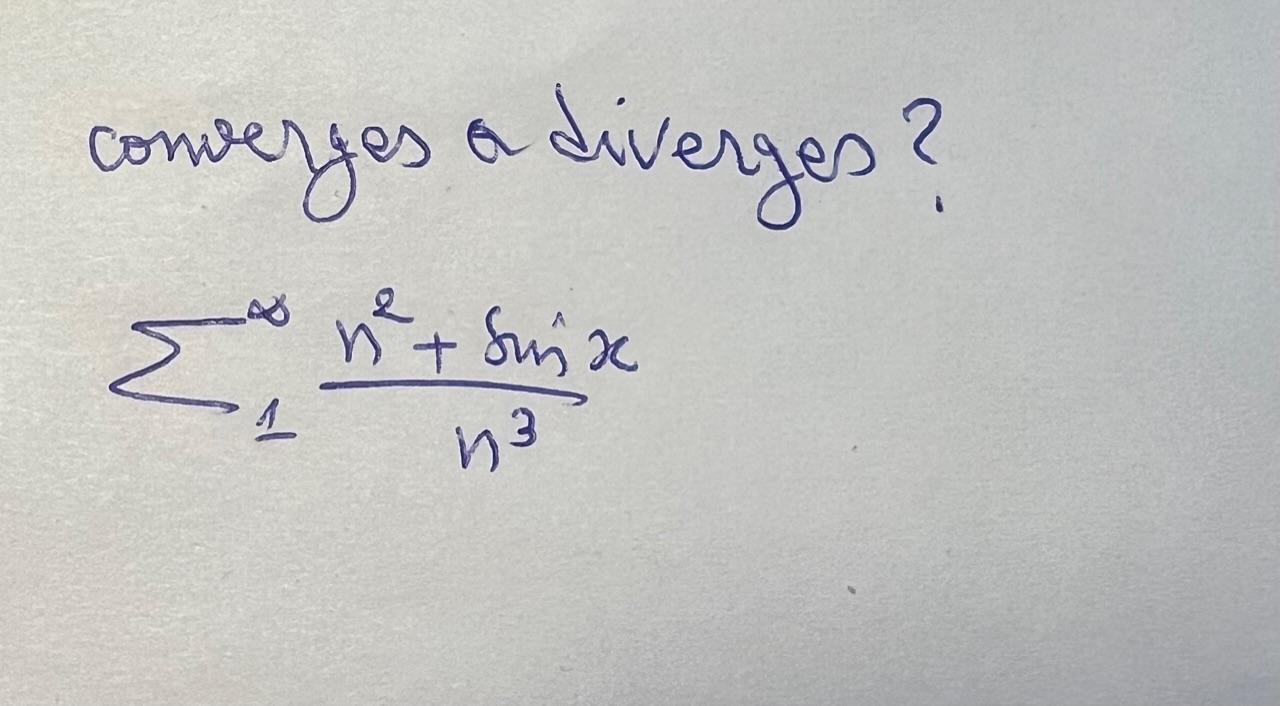 converges a diverges?
∑_1^∞ (n² + sin x)/n³